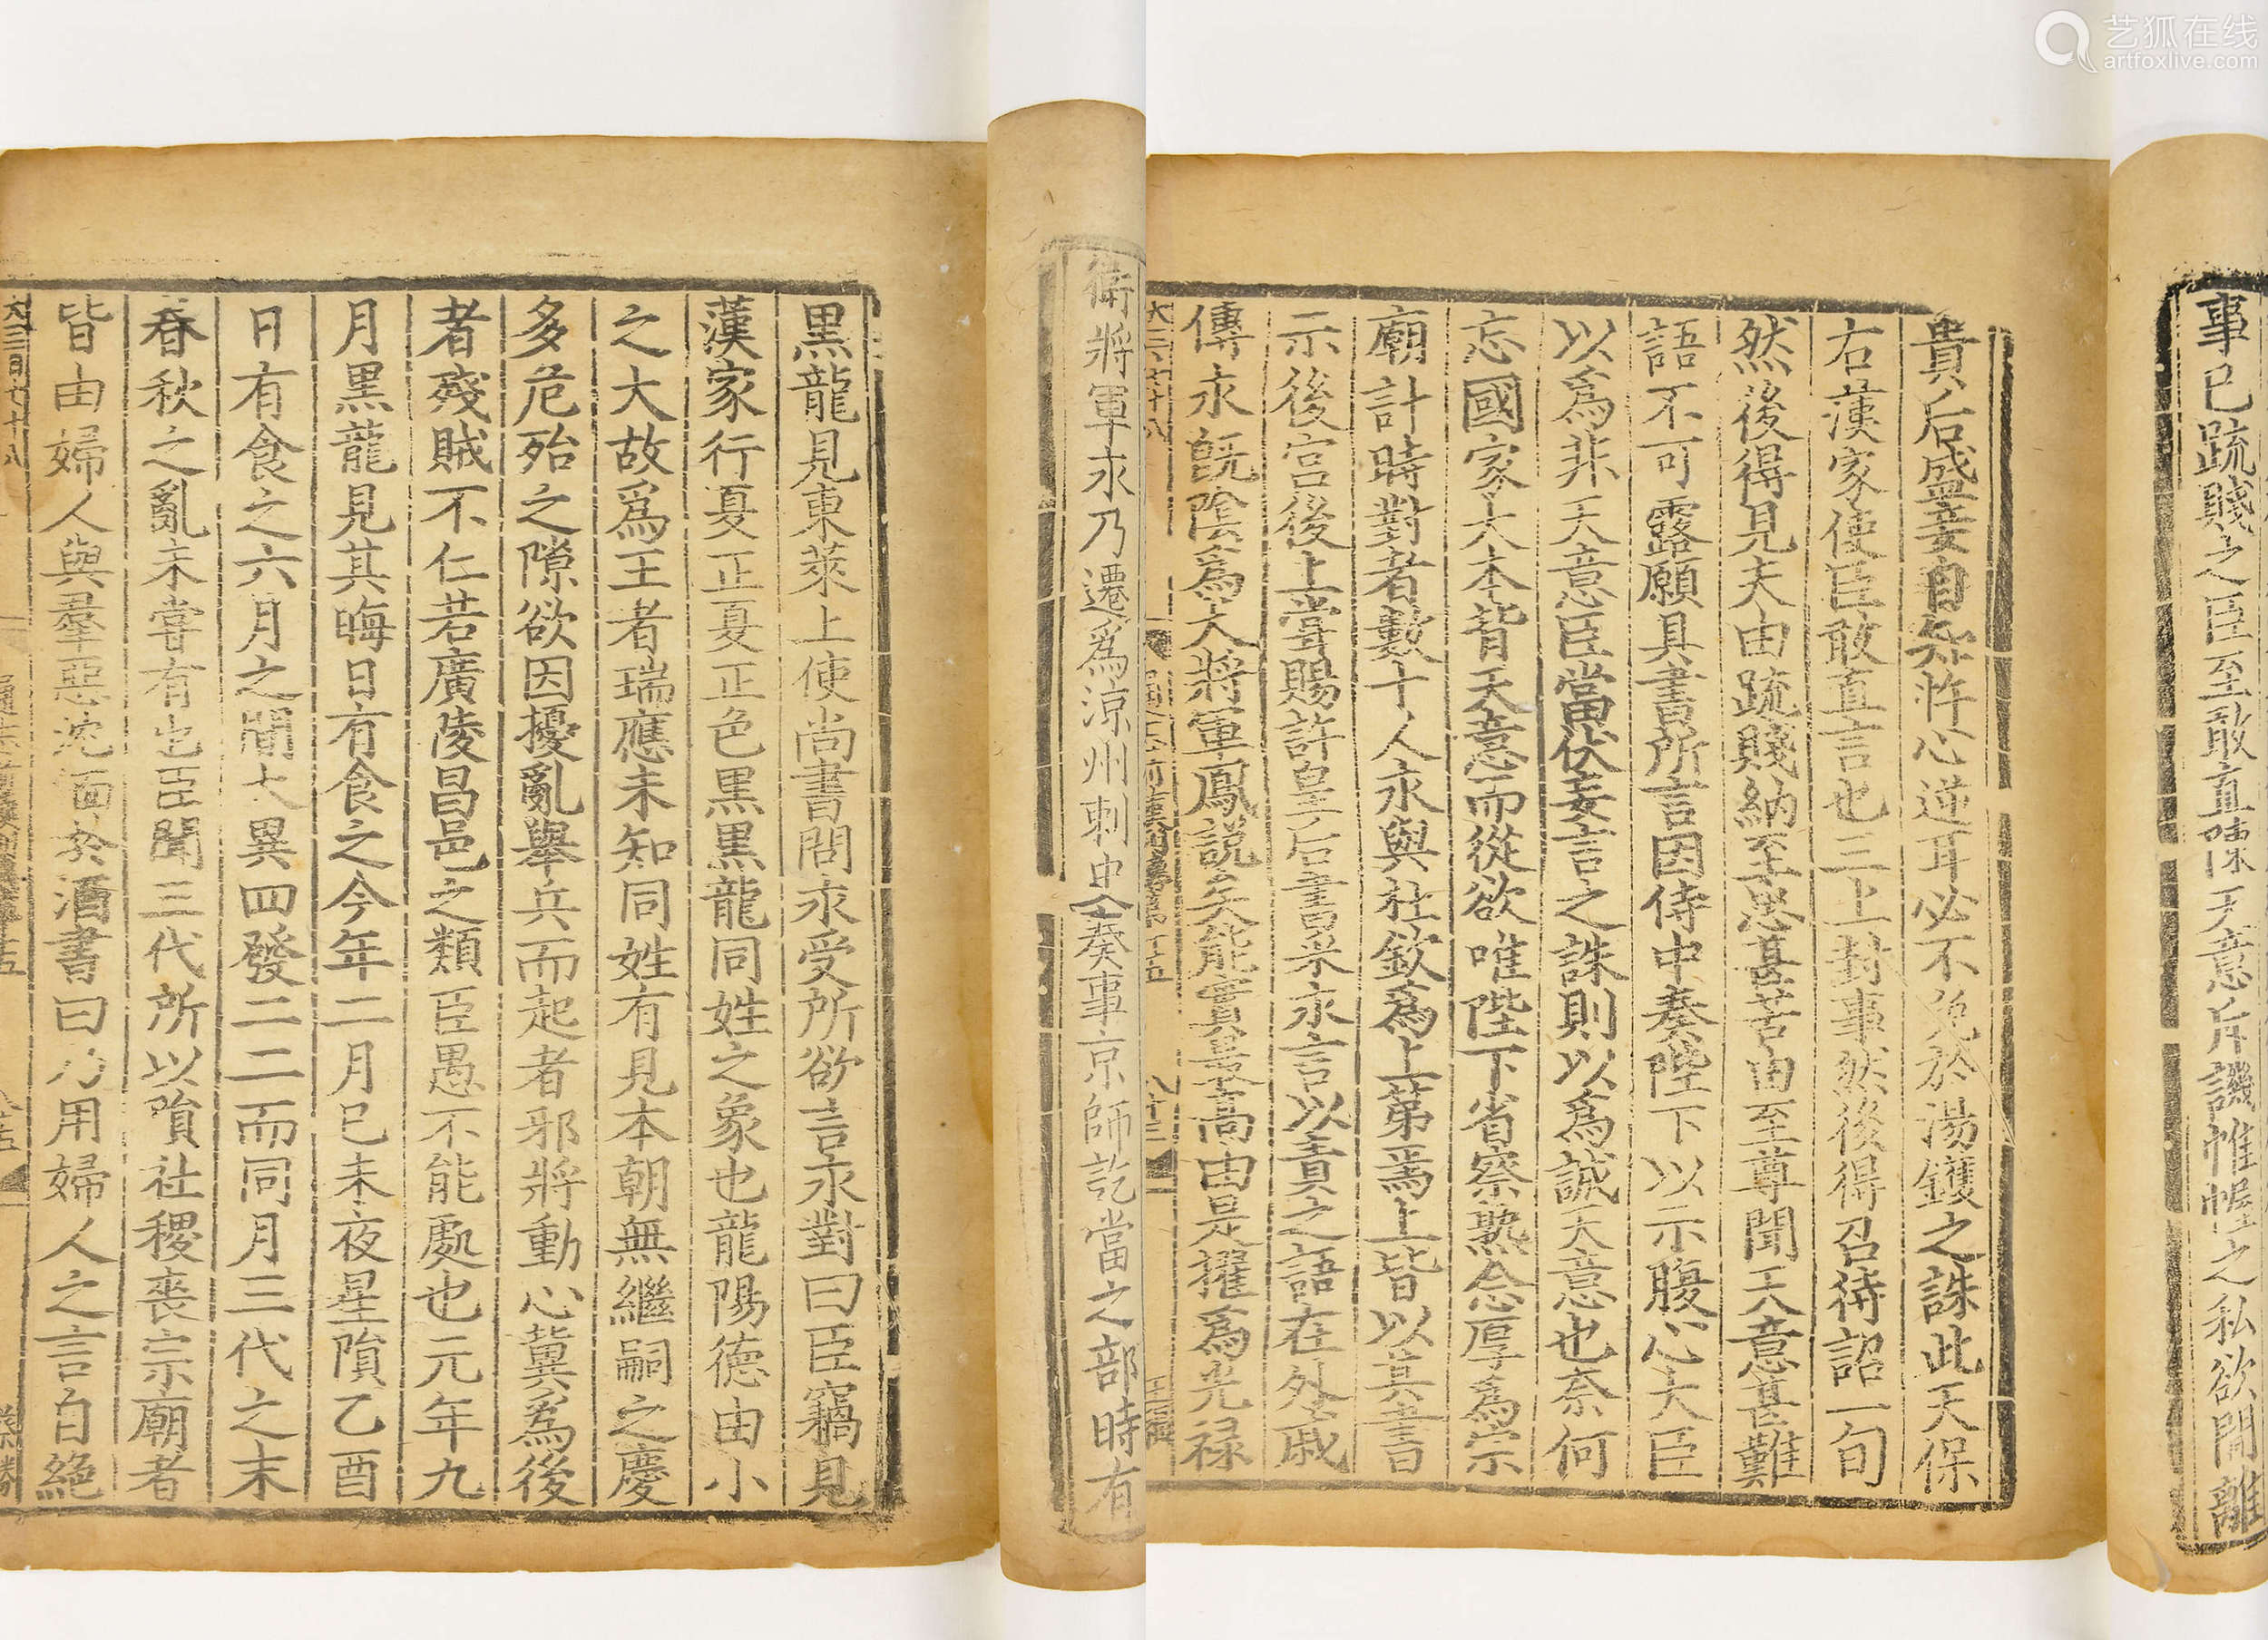 艺狐在线
artfoxlive.com
事已䟽賤之臣至敢直陳天意斥譏帷幄之私欲閒離
貴后盛妾自知忤心逆耳必不免於湯鑊之誅此天保
右漢家使臣敢直言也三上封事然後得召待詔一旬
然後得見夫由䟽賤納至忠甚苦由至尊聞天意甚難
語不可露願具書所言因侍中奏陛下以示腹心大臣
以爲非天意臣當伏妄言之誅則以爲誠天意也奈何
忘國家大本背天意而從欲唯陛下省察熟念厚爲宗
廟計時對者數十人永與杜欽爲上第焉上皆以其書
示後宫後上嘗賜許皇后書采永言以責之語在外戚
傳永旣陰爲大將軍鳳說矣能實最高由是擢爲光禄
衛將軍永乃遷爲涼州刺史奏事京師訖當之部時有
黑龍見東萊上使尚書問永受所欲言永對曰臣竊見
漢家行夏正夏正色黑黑龍同姓之象也龍陽德由小
之大故爲王者瑞應未知同姓有見本朝無繼嗣之慶
多危殆之隙欲因擾亂舉兵而起者邪將動心冀爲後
者殘賊不仁若廣陵昌邑之類臣愚不能處也元年九
月黑龍見其晦日有食之今年二月巳未夜星隕乙酉
日有食之六月之閒大異四發二二而同月三代之末
春秋之亂未嘗有也臣聞三代所以隕社稷喪宗廟者
皆由婦人與羣惡沈湎於酒書曰乃用婦人之言自絶